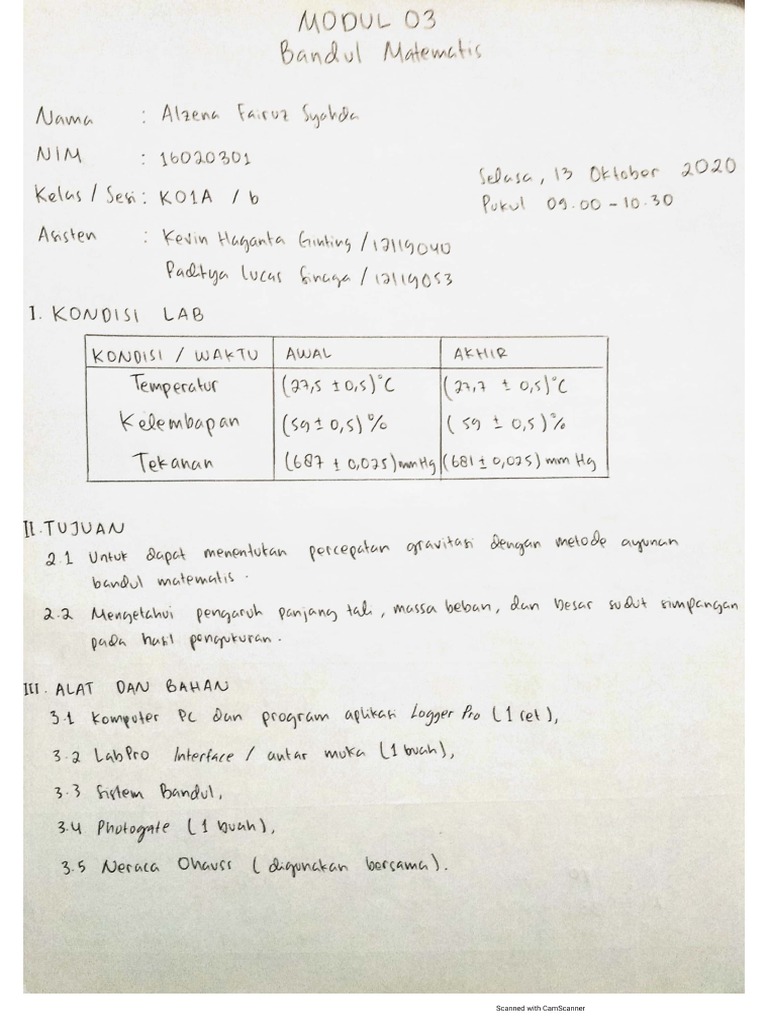 MODUL 03
Bandul Matematis
Nama : Alzena Fairuz Syahda
NIM : 16020301
Kelas / Sesi : K01A / b
Selasa, 13 Oktober 2020
Pukul 09.00 - 10.30
Asisten : Kevin Haganta Ginting / 12119040
Paditya Lucas Sinaga / 12119053
I. KONDISI LAB
KONDISI / WAKTU AWAL AKHIR
Temperatur (27,5 ± 0,5)°C (27,7 ± 0,5)°C
Kelembapan (59 ± 0,5)% (59 ± 0,5)%
Tekanan (687 ± 0,025) mmHg (681 ± 0,025) mm Hg
II. TUJUAN
2.1 Untuk dapat menentukan percepatan gravitasi dengan metode ayunan
bandul matematis.
2.2 Mengetahui pengaruh panjang tali, massa beban, dan besar sudut simpangan
pada hasil pengukuran.
III. ALAT DAN BAHAN
3.1 Komputer PC dan program aplikasi Logger Pro (1 set),
3.2 LabPro Interface / antar muka (1 buah),
3.3 Sistem Bandul,
3.4 Photogate (1 buah),
3.5 Neraca Ohauss (digunakan bersama).
Scanned with CamScanner